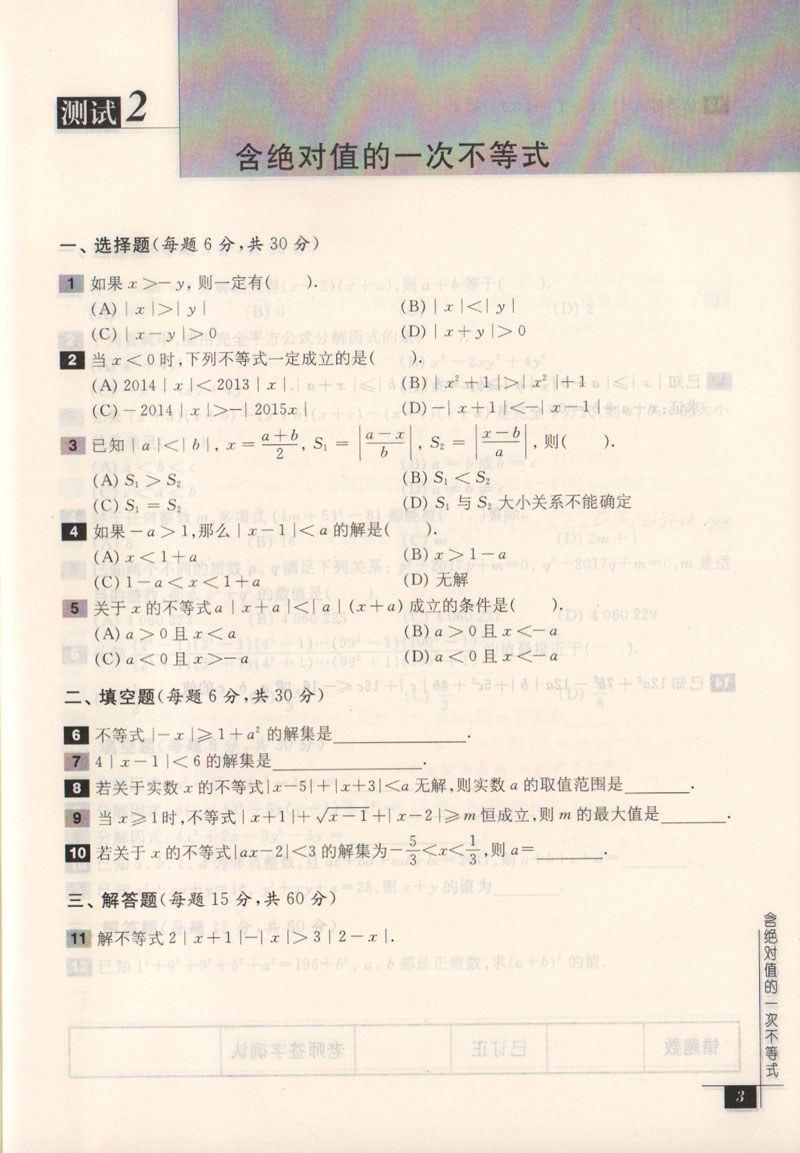 测试2
含绝对值的一次不等式
一、选择题(每题6分,共30分)
1 如果x>-y,则一定有(  ).
(A)|x|>|y|  (B)|x|<|y|
(C)|x-y|>0  (D)|x+y|>0
2 当x<0时,下列不等式一定成立的是(  ).
(A)2014|x|<2013|x|  (B)|x²+1|>|x²|+1
(C)-2014|x|>-|2015x|  (D)-|x+1|<-|x-1|
3 已知|a|<|b|, x=(a+b)/2, S₁=|(a-x)/b|, S₂=|(x-b)/a|,则(  ).
(A)S₁>S₂  (B)S₁<S₂
(C)S₁=S₂  (D)S₁与S₂大小关系不能确定
4 如果-a>1,那么|x-1|<a的解是(  ).
(A)x<1+a  (B)x>1-a
(C)1-a<x<1+a  (D)无解
5 关于x的不等式a|x+a|<|a|(x+a)成立的条件是(  ).
(A)a>0且x<a  (B)a>0且x<-a
(C)a<0且x>-a  (D)a<0且x<-a
二、填空题(每题6分,共30分)
6 不等式|-x|≥1+a²的解集是________.
7 4|x-1|<6的解集是________.
8 若关于实数x的不等式|x-5|+|x+3|<a无解,则实数a的取值范围是________.
9 当x≥1时,不等式|x+1|+√(x-1)+|x-2|≥m恒成立,则m的最大值是________.
10 若关于x的不等式|ax-2|<3的解集为-5/3<x<1/3,则a=________.
三、解答题(每题15分,共60分)
11 解不等式2|x+1|-|x|>3|2-x|.
含绝对值的一次不等式
3